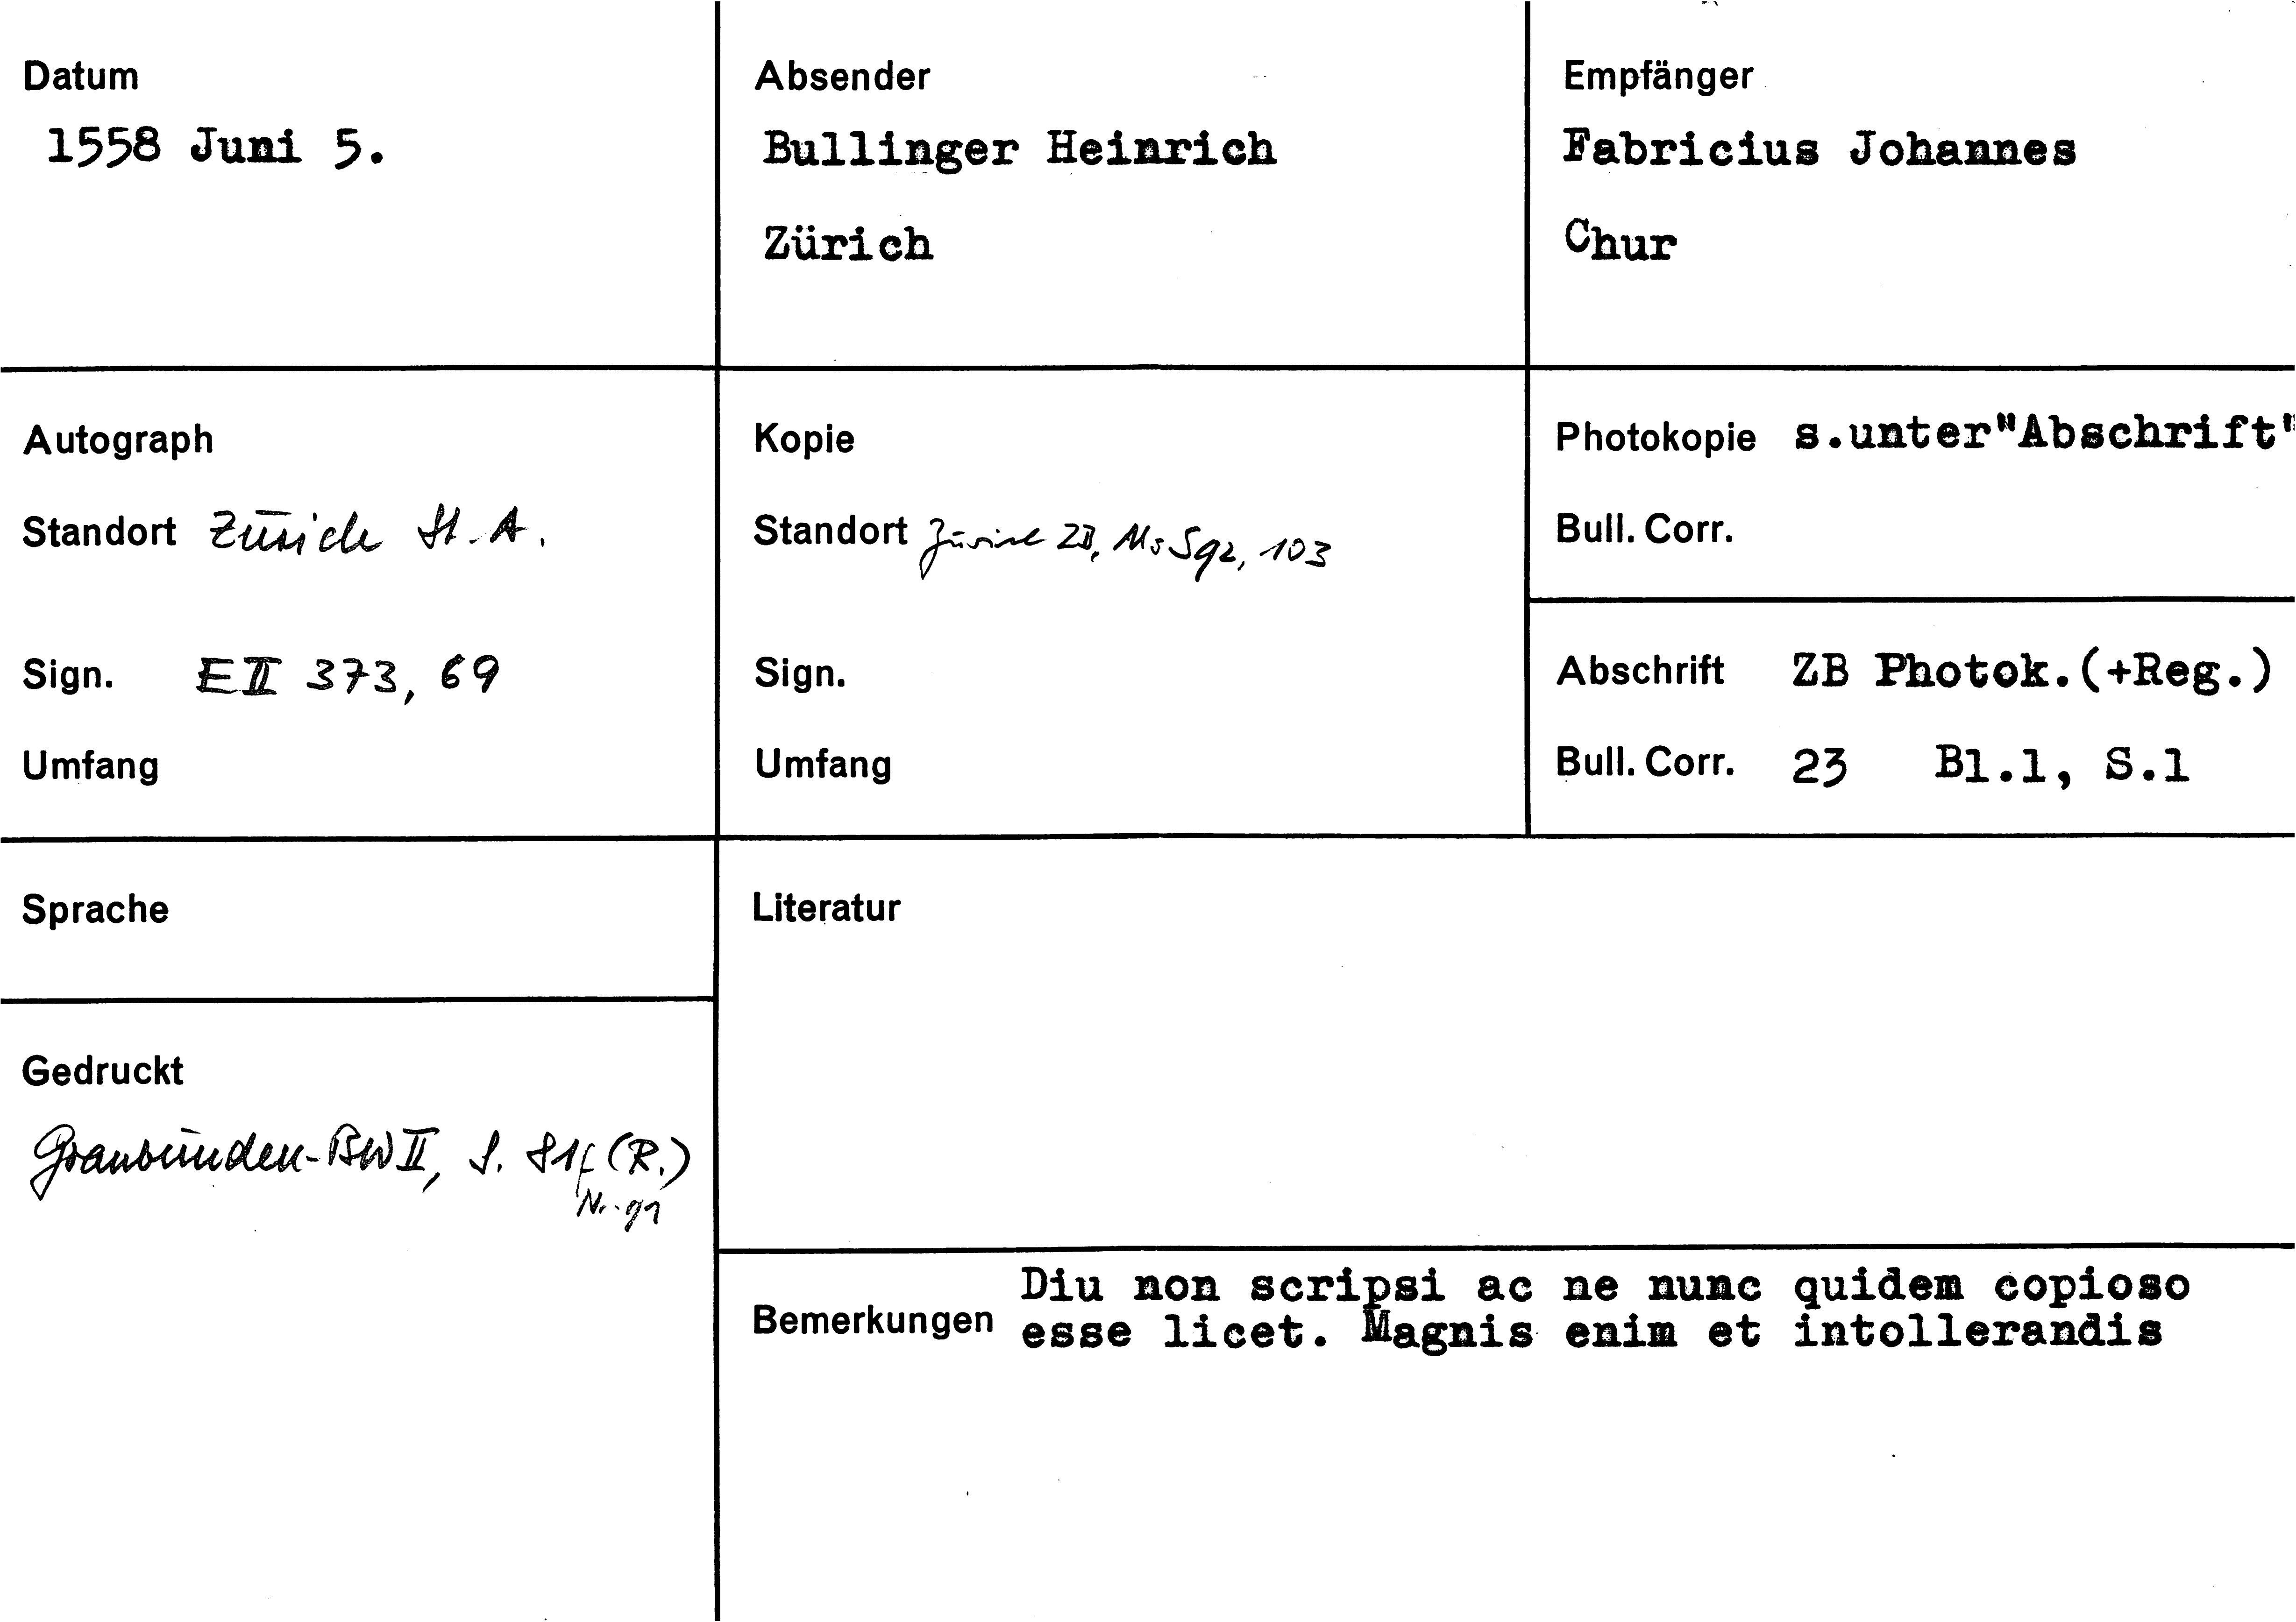 Datum
1558 Juni 5.
Absender
Bullinger Heinrich
Zürich
Empfänger
Fabricius Johannes
Chur
Autograph
Standort Zürich St. A.
Sign. E II 373, 69
Umfang
Kopie
Standort Zürich ZB, Ms S 92, 103
Sign.
Umfang
Photokopie s.unter"Abschrift"
Bull. Corr.
Abschrift ZB Photok.(+Reg.)
Bull. Corr. 23 Bl.1, S.1
Sprache
Gedruckt
Graubünden-BW II, S. 81f (R.)
Nr. 91
Literatur
Bemerkungen
Diu non scripsi ac ne nunc quidem copioso
esse licet. Magnis enim et intollerandis